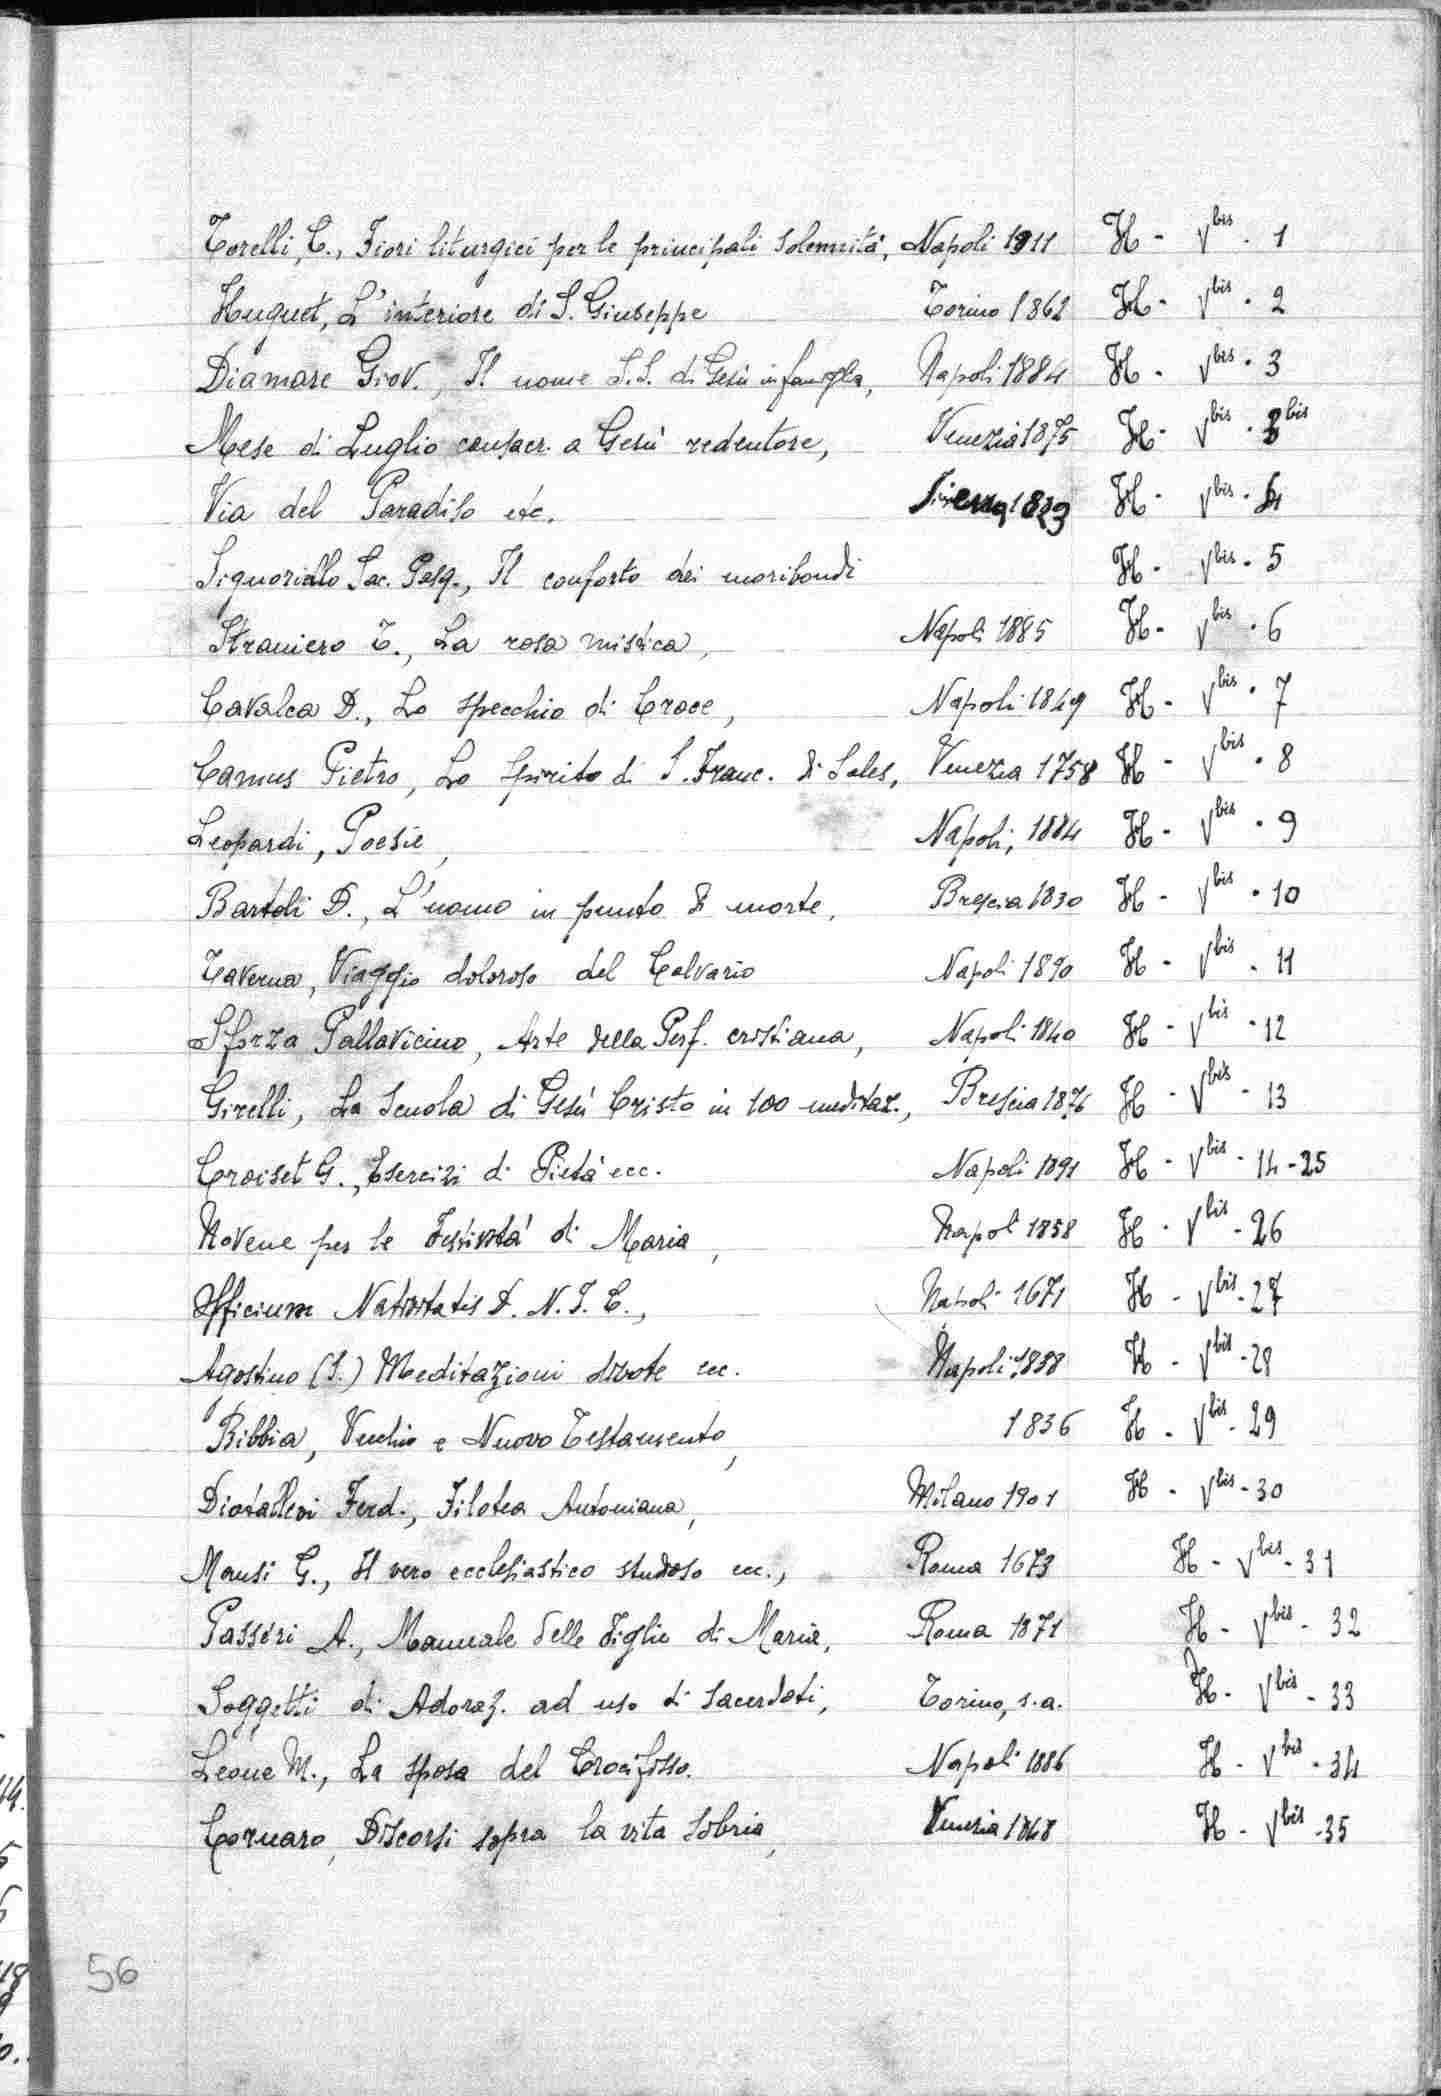 Torelli, C., Fiori liturgici per le principali solennità, Napoli 1911 H - V bis - 1
Huguet, L'interiore di S. Giuseppe Torino 1862 H - V bis - 2
Diamare Giov., Il nome S.S. di Gesù in famiglia, Napoli 1884 H - V bis - 3
Mese di Luglio consacr. a Gesù redentore, Venezia 1875 H - V bis - 3 bis
Via del Paradiso etc. 1823 H - V bis - 4
Signoriello Sac. Pasq., Il conforto dei moribondi H - V bis - 5
Straniero T., La rosa mistica, Napoli 1885 H - V bis - 6
Cavalca D., Lo specchio di Croce, Napoli 1849 H - V bis - 7
Camus Pietro, Lo Spirito di S. Franc. di Sales, Venezia 1758 H - V bis - 8
Leopardi, Poesie, Napoli, 1884 H - V bis - 9
Bartoli D., L'uomo in punto di morte, Brescia 1830 H - V bis - 10
Taverna, Viaggio doloroso del Calvario Napoli 1890 H - V bis - 11
Sforza Pallavicino, Arte della Perf. cristiana, Napoli 1840 H - V bis - 12
Girelli, La Scuola di Gesù Cristo in 100 meditaz., Brescia 1876 H - V bis - 13
Croiset G., Esercizi di Pietà ecc. Napoli 1891 H - V bis - 14-25
Novene per le Festività di Maria, Napoli 1858 H - V bis - 26
Officium Nativitatis D. N. J. C., Napoli 1671 H - V bis - 27
Agostino (S.) Meditazioni divote ecc. Napoli 1838 H - V bis - 28
Bibbia, Vecchio e Nuovo Testamento, 1836 H - V bis - 29
Diotallevi Ferd., Filotea Antoniana, Milano 1901 H - V bis - 30
Mansi G., Il vero ecclesiastico studioso ecc., Roma 1673 H - V bis - 31
Passeri A., Manuale delle Figlie di Maria, Roma 1871 H - V bis - 32
Soggetti di Adoraz. ad uso di Sacerdoti, Torino, s.a. H - V bis - 33
Leone M., La sposa del Crocifisso. Napoli 1886 H - V bis - 34
Cornaro, Discorsi sopra la vita sobria, Venezia 1848 H - V bis - 35
56